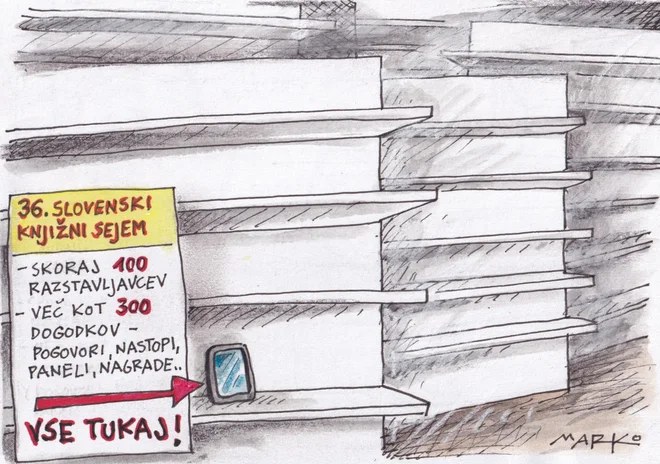 36. SLOVENSKI
KNJIŽNI SEJEM
- SKORAJ 100
RAZSTAVLJAVCEV
- VEČ KOT 300
DOGODKOV -
POGOVORI, NASTOPI,
PANELI, NAGRADE..
VSE TUKAJ!
MARKO